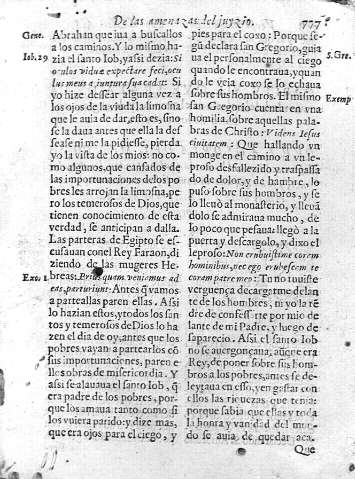 De las amenazas del juyzio. 777
Gene.
Iob. 29
Exo. 1
Abrahan que iua a buscallos
a los caminos. Y lo mismo ha-
zia el santo Iob, y assi dezia: Si
oculos viduæ expectare feci, ocu
lus meus a iunctura sua cadat: Si
yo hize dessear alguna vez a
los ojos de la viuda la limosna
que le auia de dar, esto es, si no
se la daua antes que ella la des
sease ni me la pidiesse, pierda
yo la vista de los mios: no co-
mo algunos, que cansados de
las importunaciones de los po
bres les arrojan la limosna, pe
ro los temerosos de Dios, que
tienen conocimiento de esta
verdad, se anticipan a dalla.
Las parteras de Egipto se es-
cusauan con el Rey Faraon, di
ziendo de las mugeres He-
breas, Prius quam veniamus ad
eas, parturiunt: Antes q̃ vamos
a parteallas paren ellas. Assi
lo hazian estos, y todos los san
tos y temerosos de Dios lo ha
zen el dia de oy, antes que los
pobres vayan a partearlos cõ
sus importunaciones, paren e
llos obras de misericordia. Y
assi se alauaua el santo Iob, q̃
era padre de los pobres, por-
que los amaua tanto como si
los vuiera parido: y dize mas,
que era ojos para el ciego, y
pies para el coxo: Porque se-
gũ declara san Gregorio, guia
ua el personalmente al ciego
quando le encontraua, y quan
do le veia coxo se lo echaua
sobre sus hombros. El mismo
san Gregorio cuenta en vna
homilia, sobre aquellas pala-
bras de Christo: Videns Iesus
ciuitatem: Que hallando vn
monge en el camino a vn le-
proso desfallezido y traspassa
do de dolor, y de hambre, lo
puso sobre sus hombros, y se
lo lleuò al monasterio, y lleuã
dolo se admiraua mucho, de
lo poco que pesaua: llegò a la
puerta y descargolo, y dixo el
leproso: Non erubuistime coram
hominibus, nec ego erubescem te
coram patre meo: Tu no tuuiste
verguença de cargarme delan
te de los hombres, ni yo la tẽ
dre de confessarte por mio de
lante de mi Padre, y luego de
saparecio. Assi el santo Iob
no se auergonçaua, aũque era
Rey, de poner sobre sus hom-
bros a los pobres, antes se de-
leytaua en esso, y en gastar con
ellos las riquezas que tenia:
porque sabia que ellas y toda
la honra y vanidad del mun-
do se auia de quedar aca.
Que
S. Gre.
Exemp